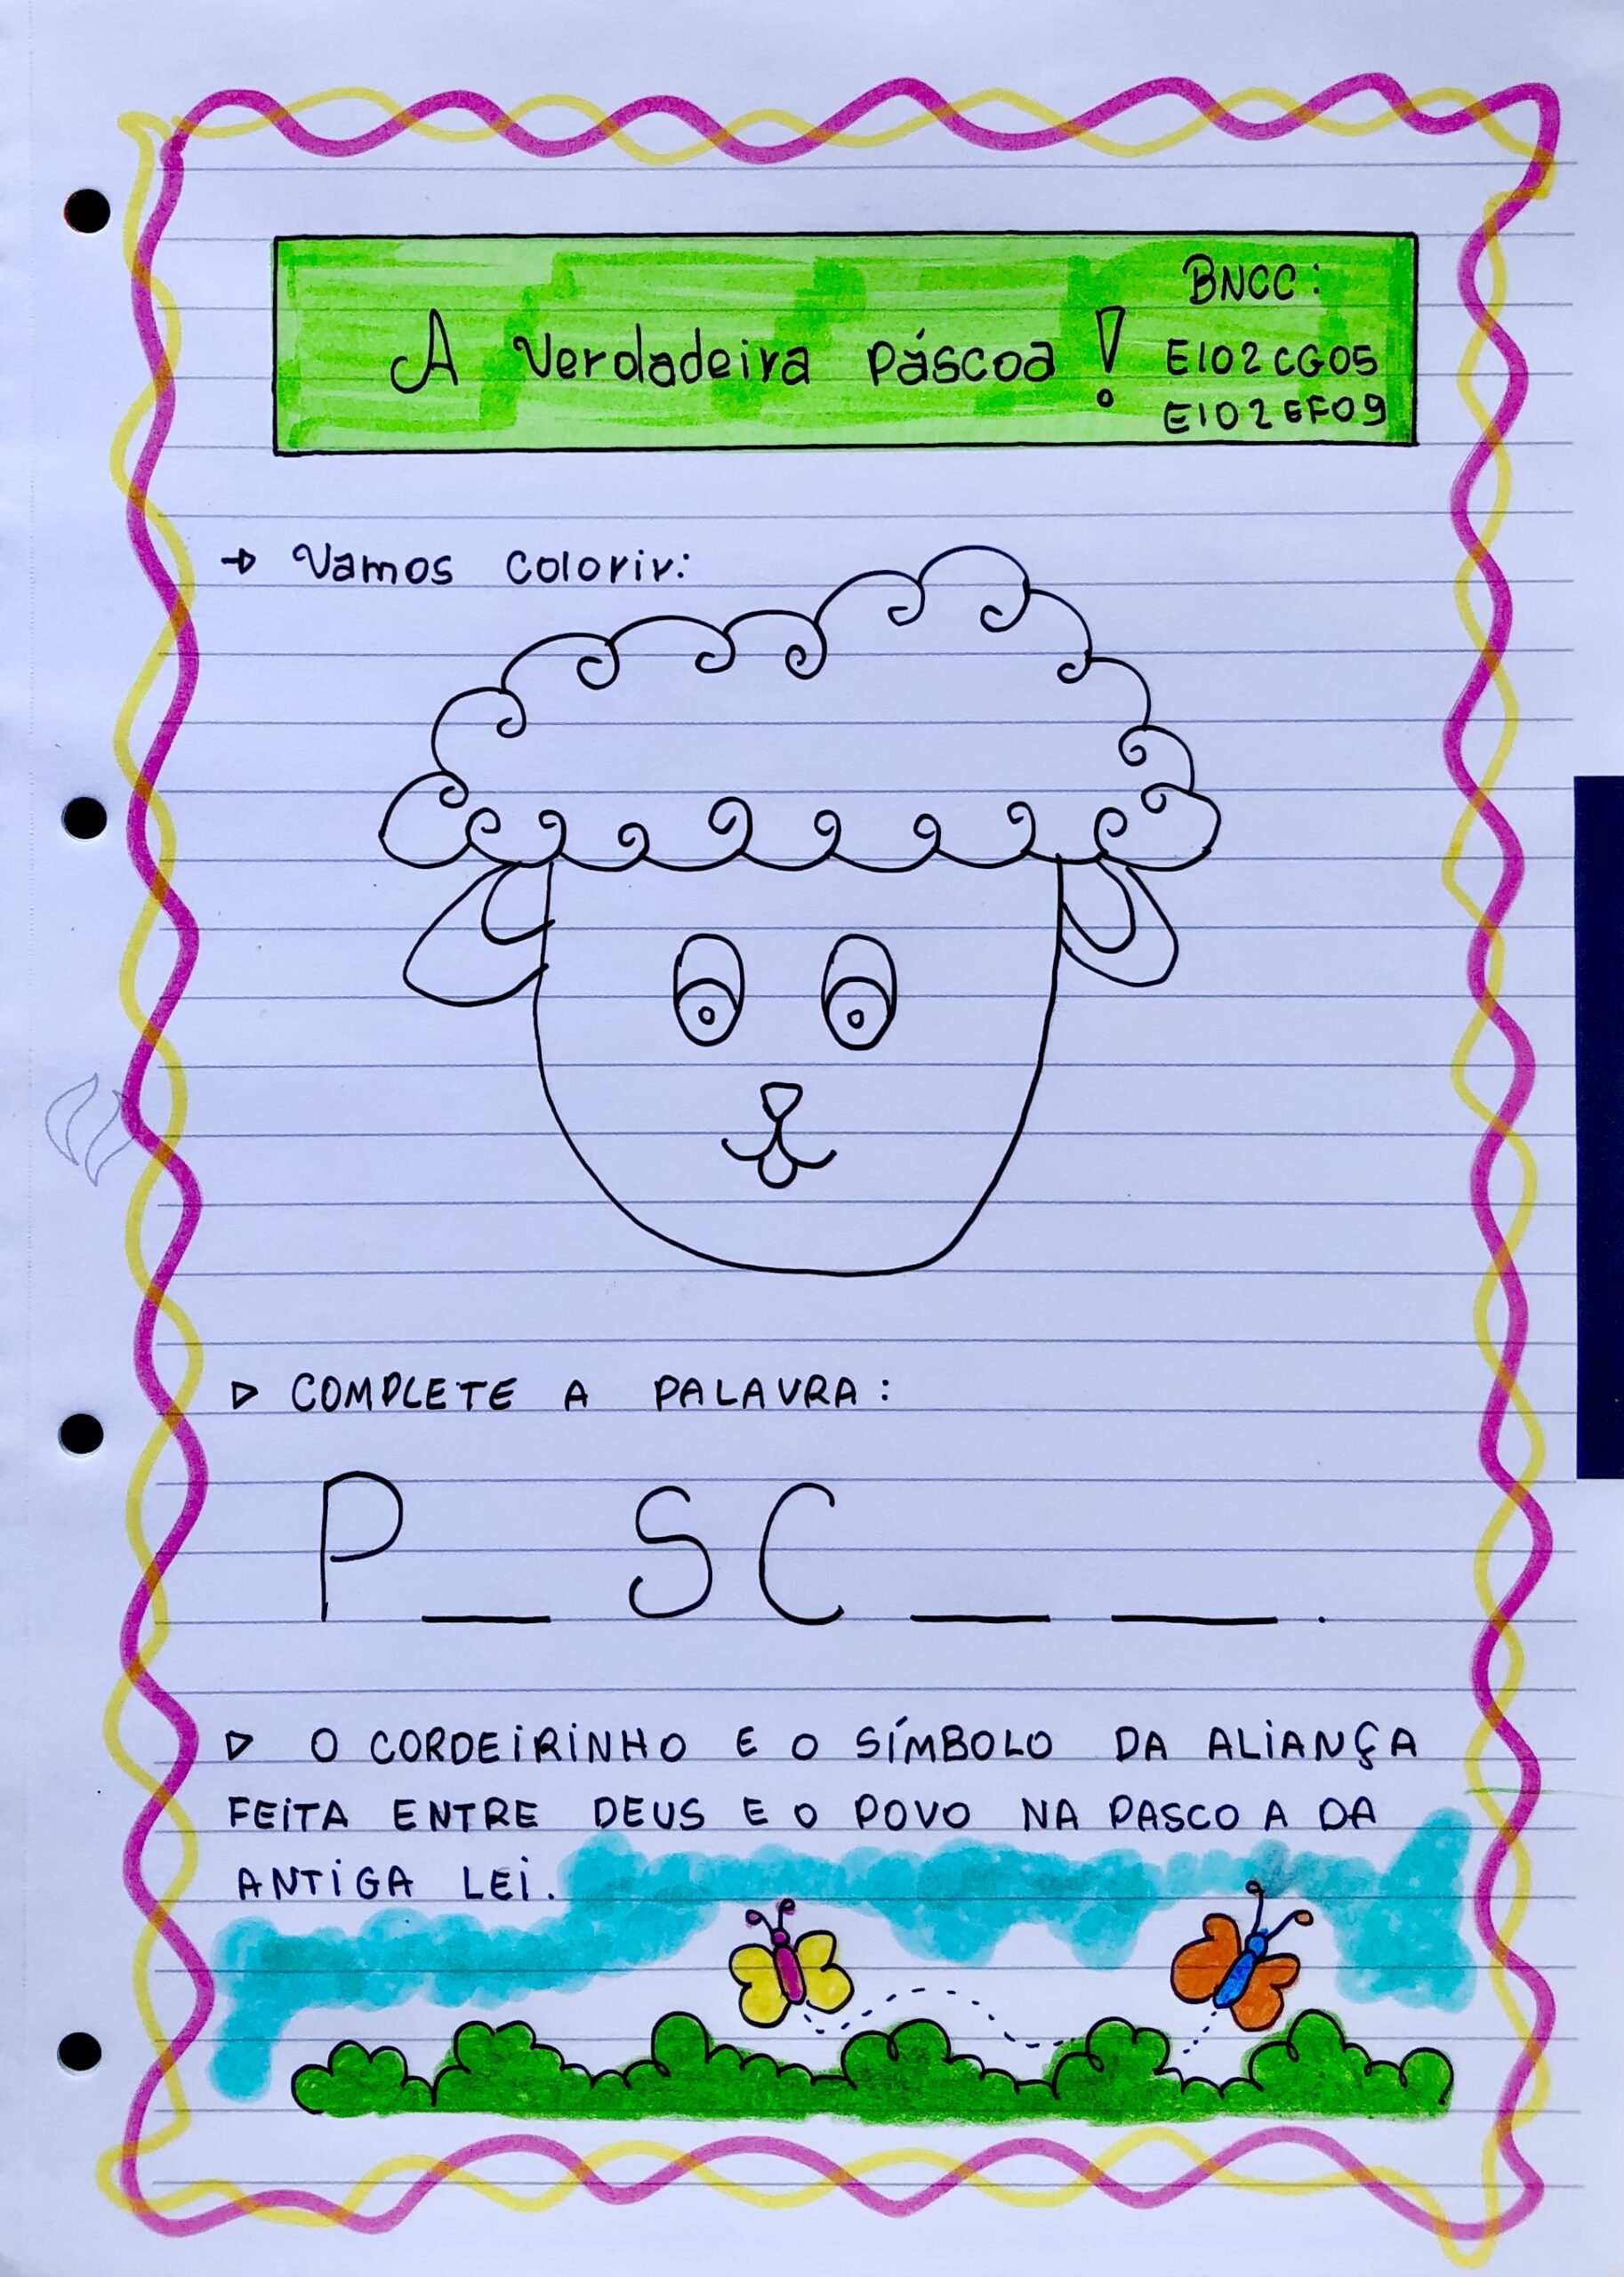 A Verdadeira Páscoa!
BNCC:
EI02CG05
EI02EF09
→ Vamos colorir:
▷ COMPLETE A PALAVRA:
P_ SC _ _.
▷ O CORDEIRINHO E O SÍMBOLO DA ALIANÇA
FEITA ENTRE DEUS E O POVO NA PASCO A DA
ANTIGA LEI.